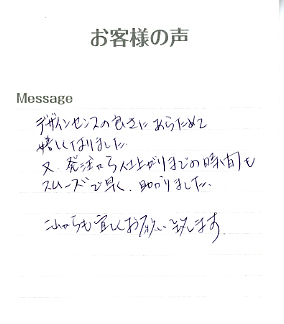 お客様の声
Message
デザインセンスの良さにあらためて
嬉しくなりました。
又、発注から仕上がりまでの時間も
スムーズで早く、助かりました。
これからも宜しくお願い致します。